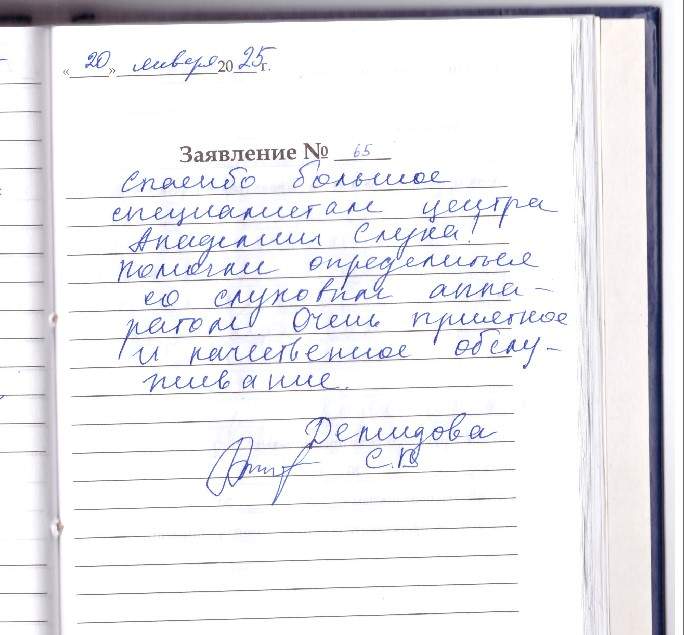 « 20 » января 2025 г.
Заявление № 65
Спасибо большое
специалистам центра
Академии Слуха!
Помогли определиться
со слуховым аппа-
ратом. Очень приятное
и качественное обслу-
живание.
Демидова
С.В